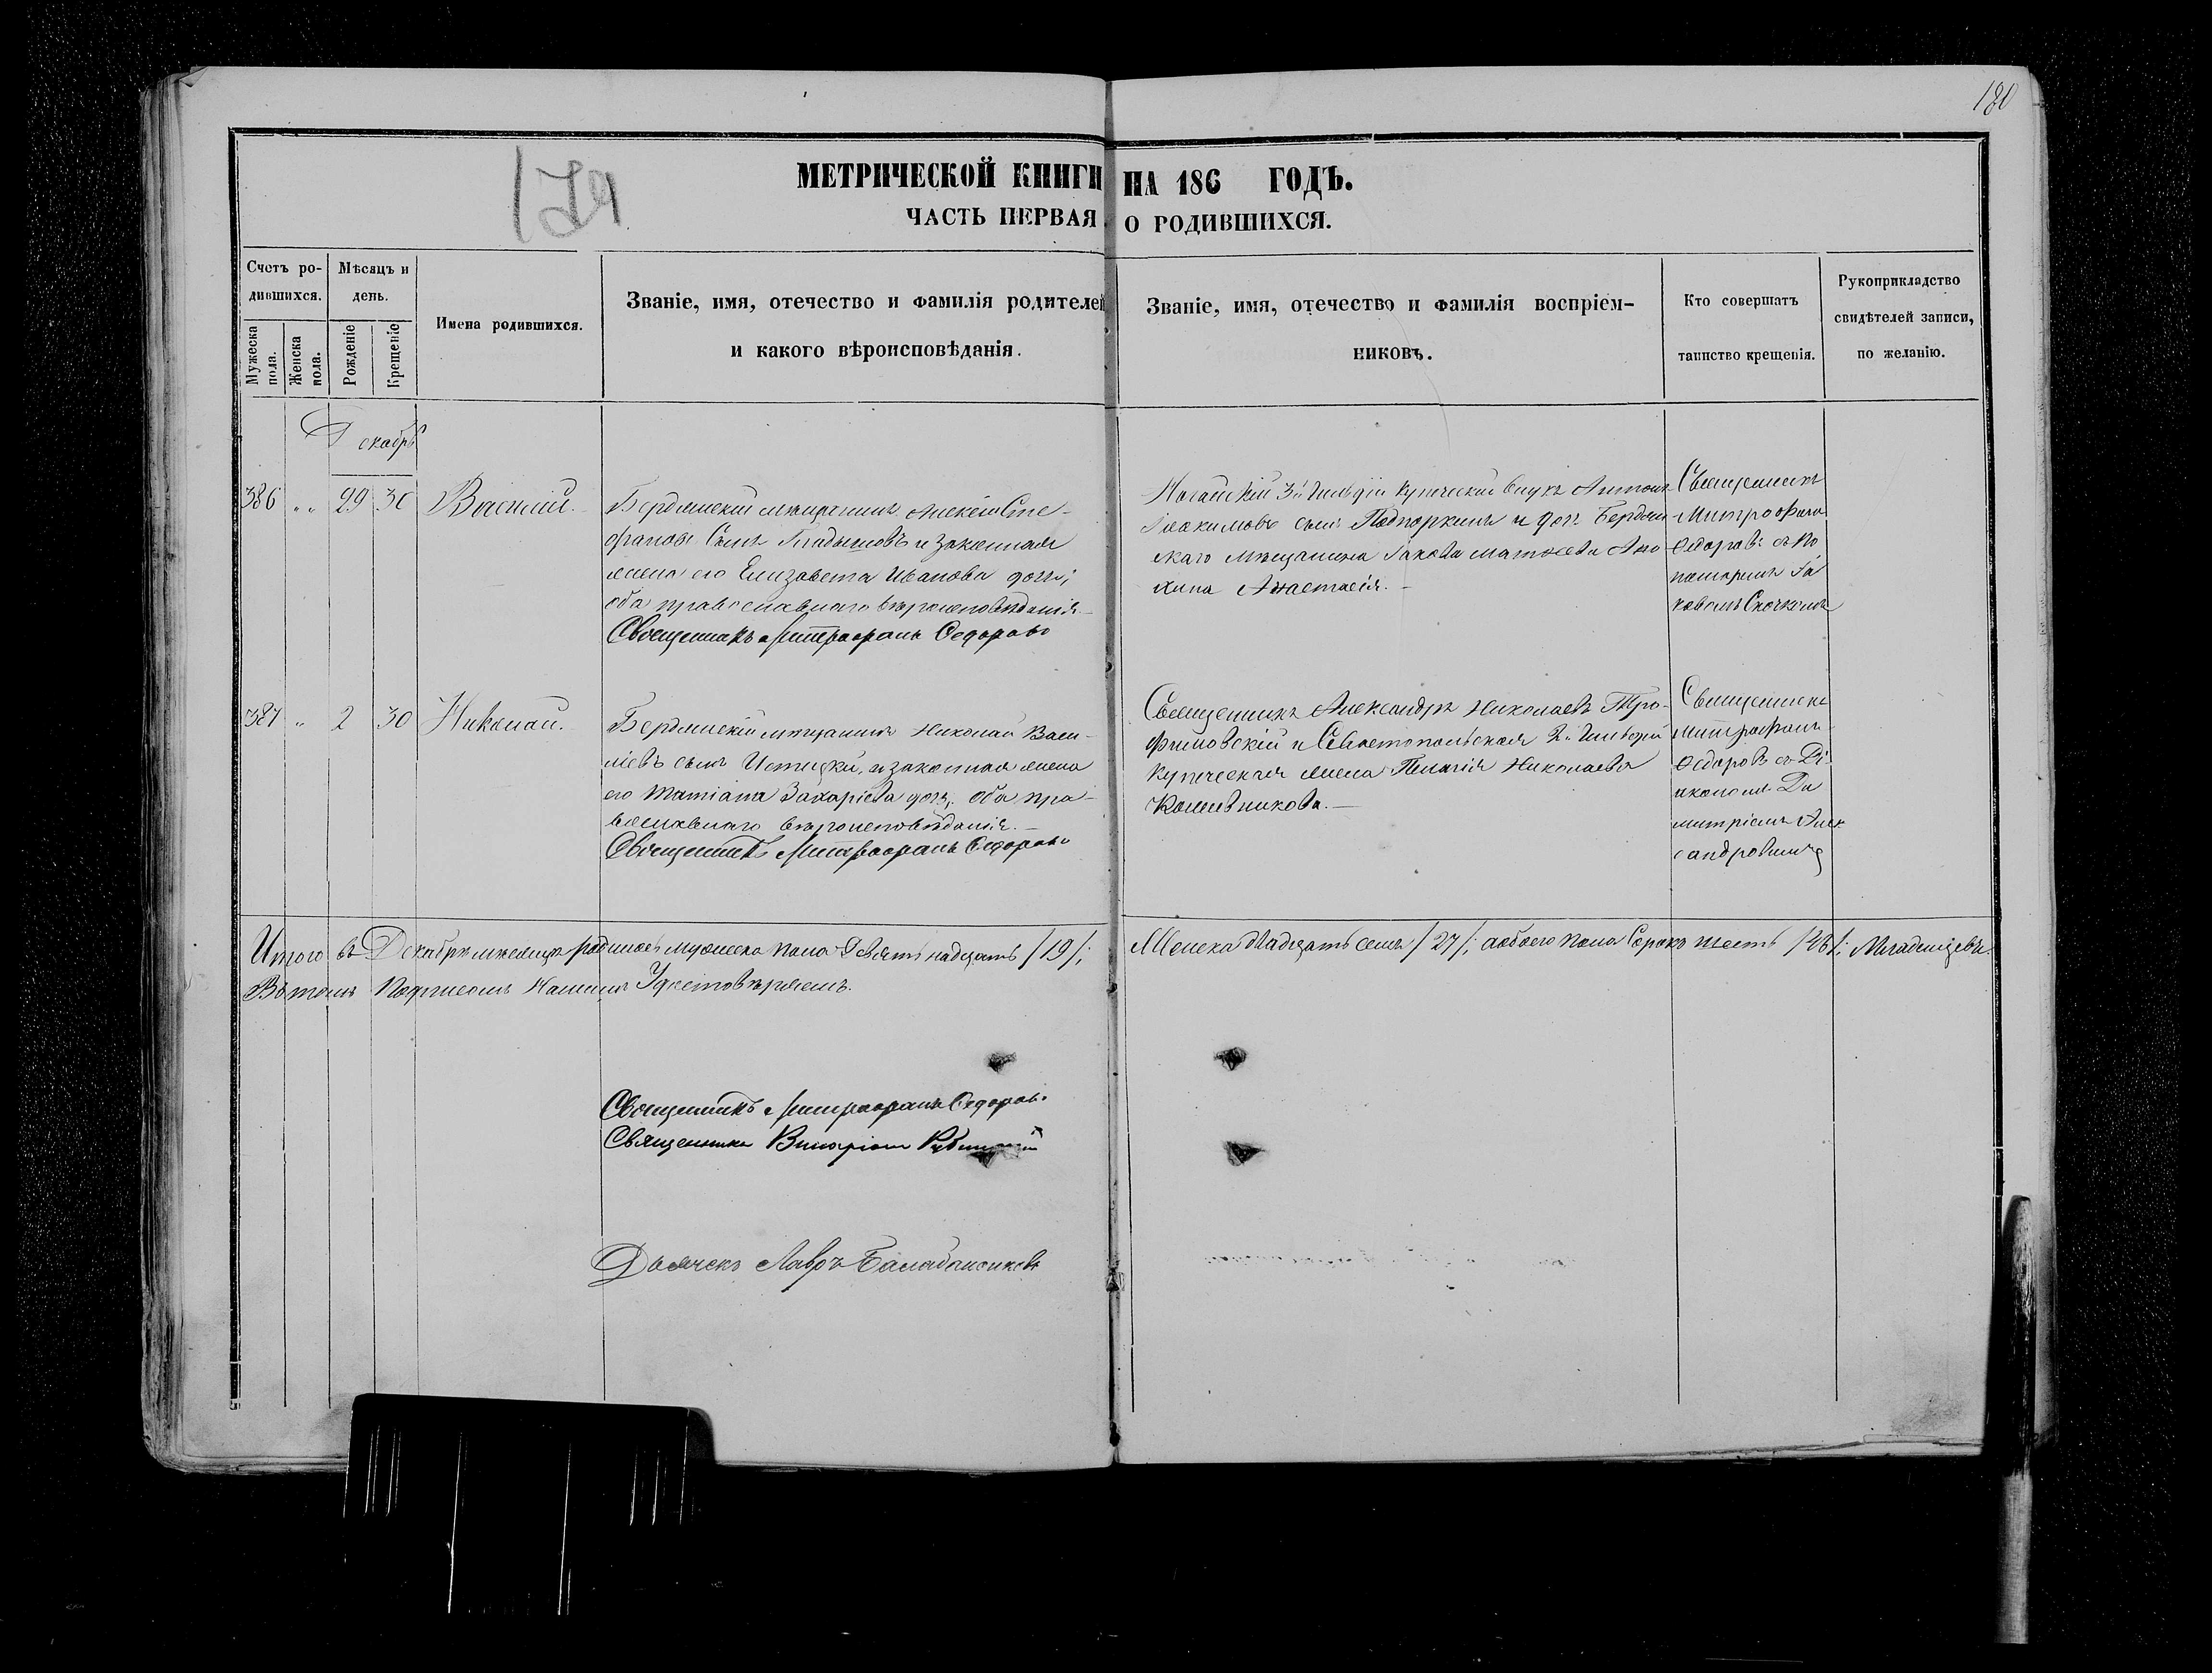 180
179
МЕТРИЧЕСКОЙ КНИГИ НА 186 ГОДЪ.
ЧАСТЬ ПЕРВАЯ О РОДИВШИХСЯ.
Счетъ ро-
дившихся.
Мужеска пола.
Женска пола.
Мѣсяцъ и
день.
Рожденіе
Крещеніе
Имена родившихся.
Званіе, имя, отечество и фамилія родителей
и какого вѣроисповѣданія.
Званіе, имя, отечество и фамилія воспріем-
никовъ.
Кто совершатъ
таинство крещенія.
Рукоприкладство
свидѣтелей записи,
по желанію.
Декабрь
386 " " 29 30 Василій.
Бердянскій мѣщанинъ Алексѣй Сте-
фановъ сынъ Гладышовъ и законная
жена его Елизавета Иванова дочь;
оба православнаго вѣроисповѣданія.
Священникъ Митрофанъ Ѳедоровъ
Ногайскій 3й гильдіи купеческій внукъ Антонъ
Іоакимовъ сынъ Подпоркинъ и дочь Бердян-
скаго мѣщанина Іакова Матѳеева
Анастасія.
Священникъ
Митрофанъ
Ѳедоровъ съ по
номаремъ Іа
ковомъ
387 " 2 30 Николай.
Бердянскій мѣщанинъ Николай Васи-
ліевъ сынъ и законная жена
его Татіана Захаріева дочь, оба пра-
вославнаго вѣроисповѣданія.
Священникъ Митрофанъ Ѳедоровъ
Священникъ Александръ Николаевъ Тро-
фимовскій и Севастопольская 2й гильдіи
купеческая жена Пелагія Николаева
Кожевникова.
Священникъ
Митрофанъ
Ѳедоровъ съ Ді
акономъ Ди
митріемъ Алек
сандровичъ
Итого въ Декабрѣ мѣсяцѣ родилось мужеска пола девятьнадцать /19/; Женска двадцать семь /27/; а обоего пола сорокъ шесть /46/; младенцевъ.
Въ томъ подписомъ нашимъ удостовѣряемъ.
Священникъ Митрофанъ Ѳедоровъ
Священникъ
Дьячекъ Лавръ Балабаненковъ